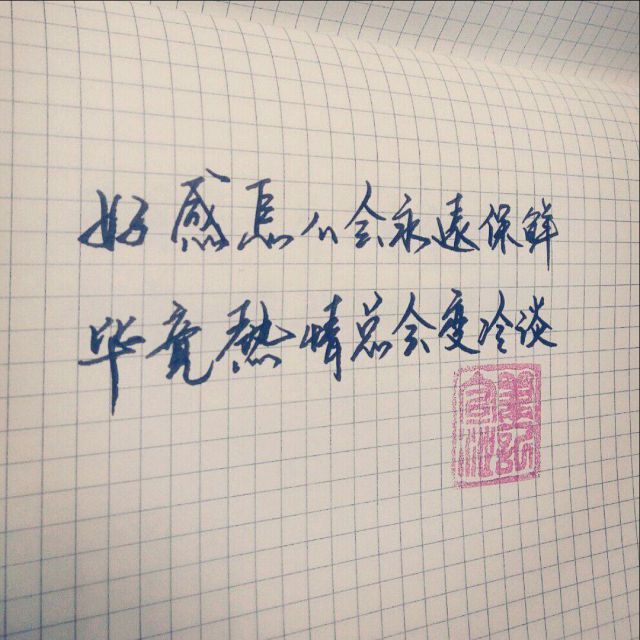 好感怎么会永远保鲜
毕竟热情总会变冷淡